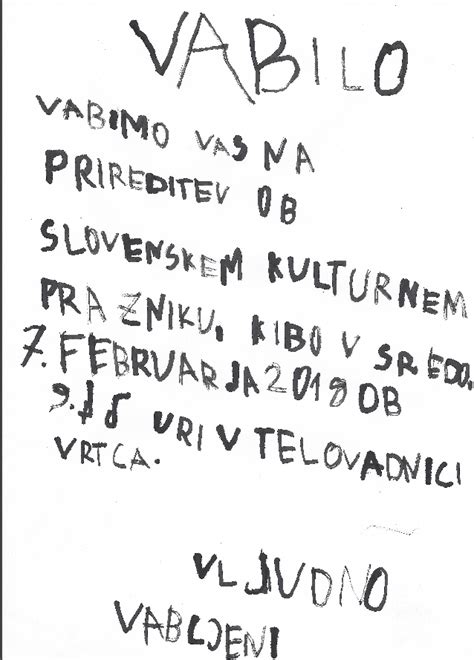 VABILO
VABIMO VAS NA
PRIREDITEV OB
SLOVENSKEM KULTURNEM
PRAZNIKU, KI BO V SREDO,
7. FEBRUARJA 2018 OB
9.15 URI V TELOVADNICI
VRTCA.
VLJUDNO
VABLJENI